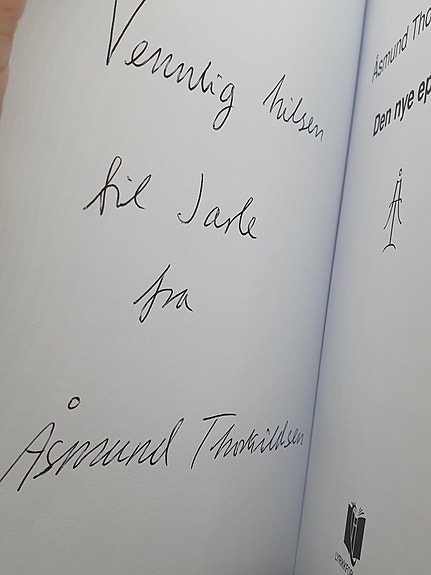 Vennlig hilsen
til Jarle
fra
Åsmund Thorkildsen
Åsmund Tho
Den nye ep